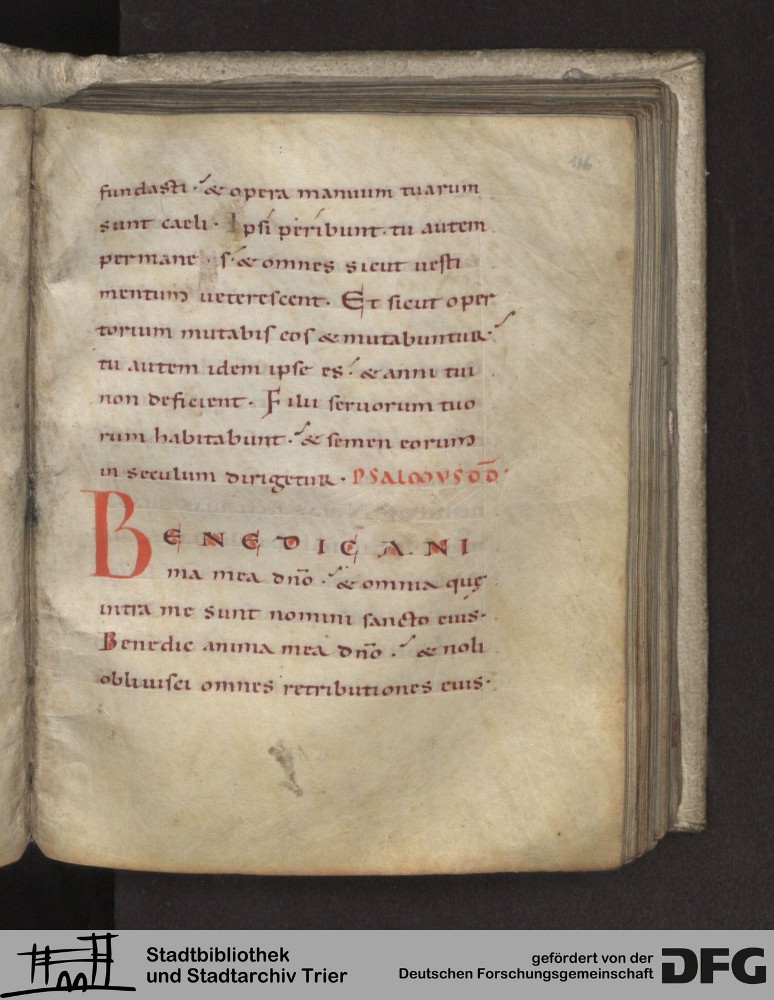 116
fundasti · & opera manuum tuarum
sunt caeli · Ipsi peribunt · tu autem
permane · s · & omnes sicut vesti
mentum veterescent · Et sicut oper
torium mutabis eos & mutabuntur ·
tu autem idem ipse es · & anni tui
non deficient · Filii servorum tuo
rum habitabunt · & semen eorum
in seculum dirigetur · PSALMVS DD̄ ·
BENEDIC ANI
ma mea dn̄o · & omnia quę
intra me sunt nomini sancto eius ·
Benedic anima mea dn̄o · & noli
oblivisci omnes retributiones eius ·
Stadtbibliothek
und Stadtarchiv Trier
gefördert von der
Deutschen Forschungsgemeinschaft
DFG